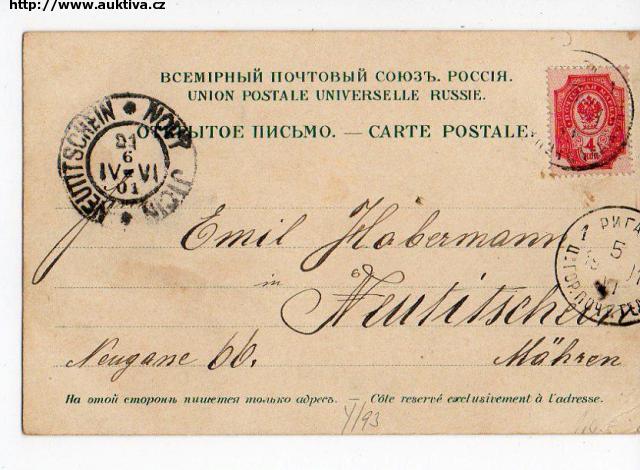 http://www.auktiva.cz
ВСЕМІРНЫЙ ПОЧТОВЫЙ СОЮЗЪ. РОССІЯ.
UNION POSTALE UNIVERSELLE RUSSIE.
ОТКРЫТОЕ ПИСЬМО. — CARTE POSTALE.
4
NEUTITSCHEIN * NOVÝ JIČÍN *
21
6
IV–VI
01
Emil Habermann
in
Neutitschein
Neugasse 66.
Mähren
РИГА
1
5
На этой сторонѣ пишется только адресъ. — Côte reservé exclusivement à l'adresse.
Y/93